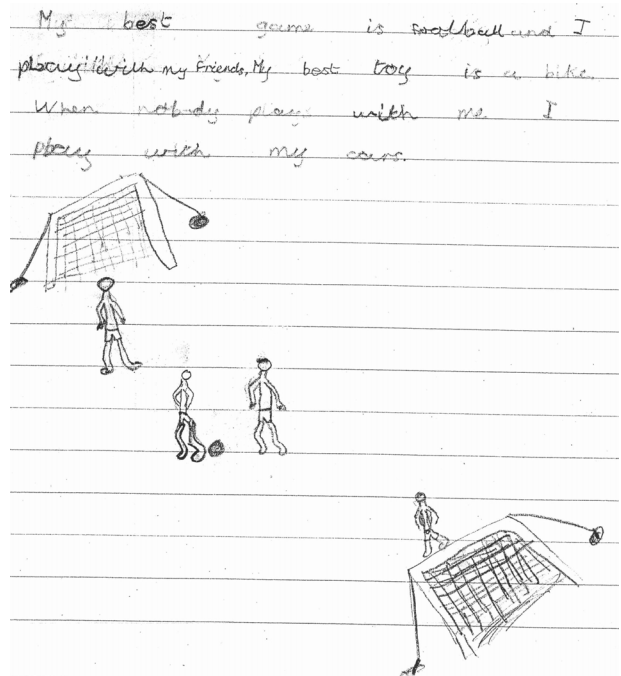 My best game is football and I
play with my Friends, My best toy is a bike
When nobdy plays with me I
play with my cars.